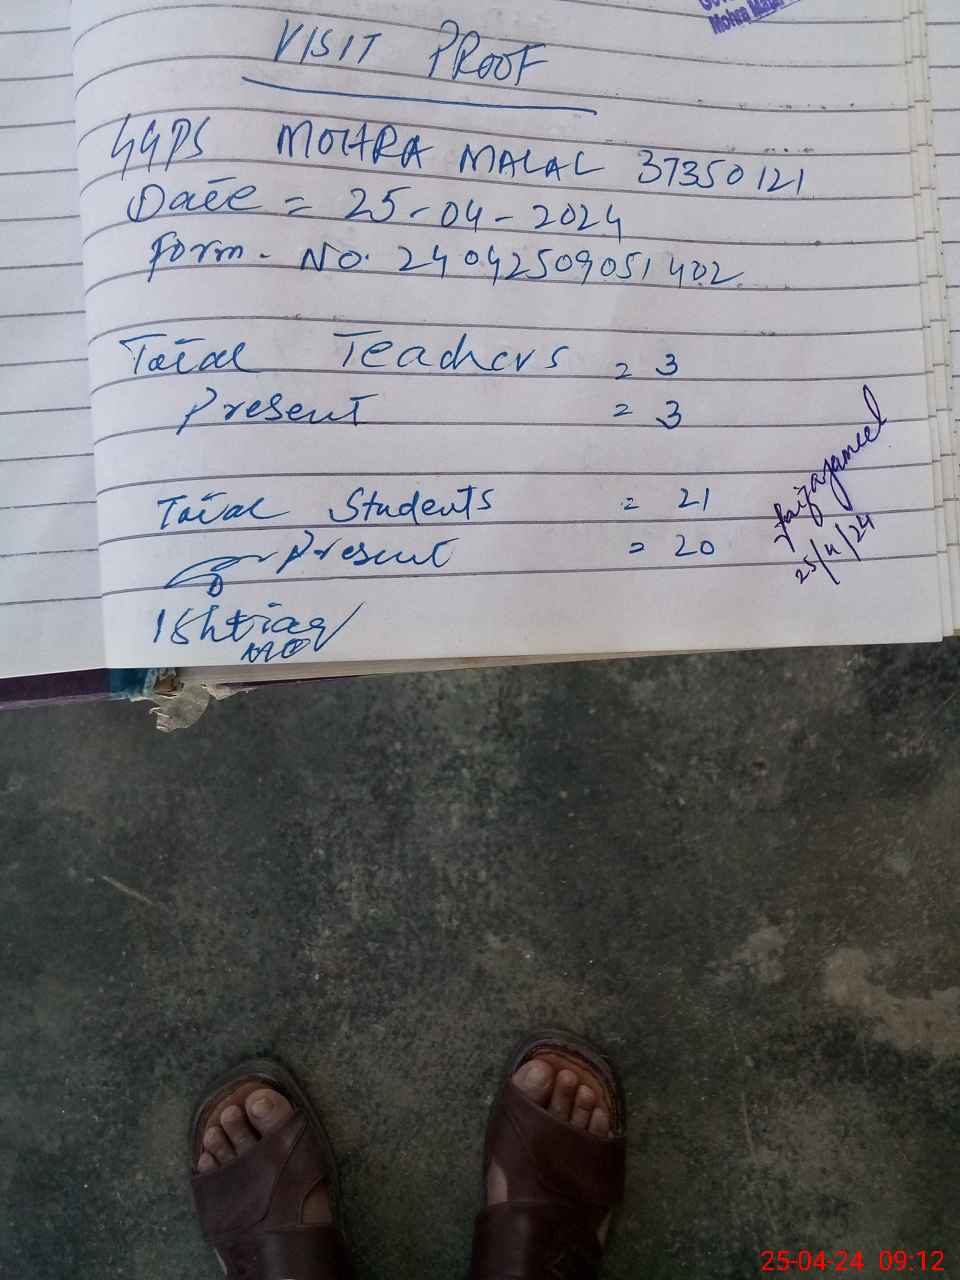 VISIT PROOF
GGPS MOHRA MALAL 37350121
Date = 25-04-2024
Form. No. 24042509051402
Total Teachers = 3
Present = 3
Total Students = 21
Present = 20
Ishtiaq
faiza jameel
25/4/24
Mohra
25-04-24 09:12